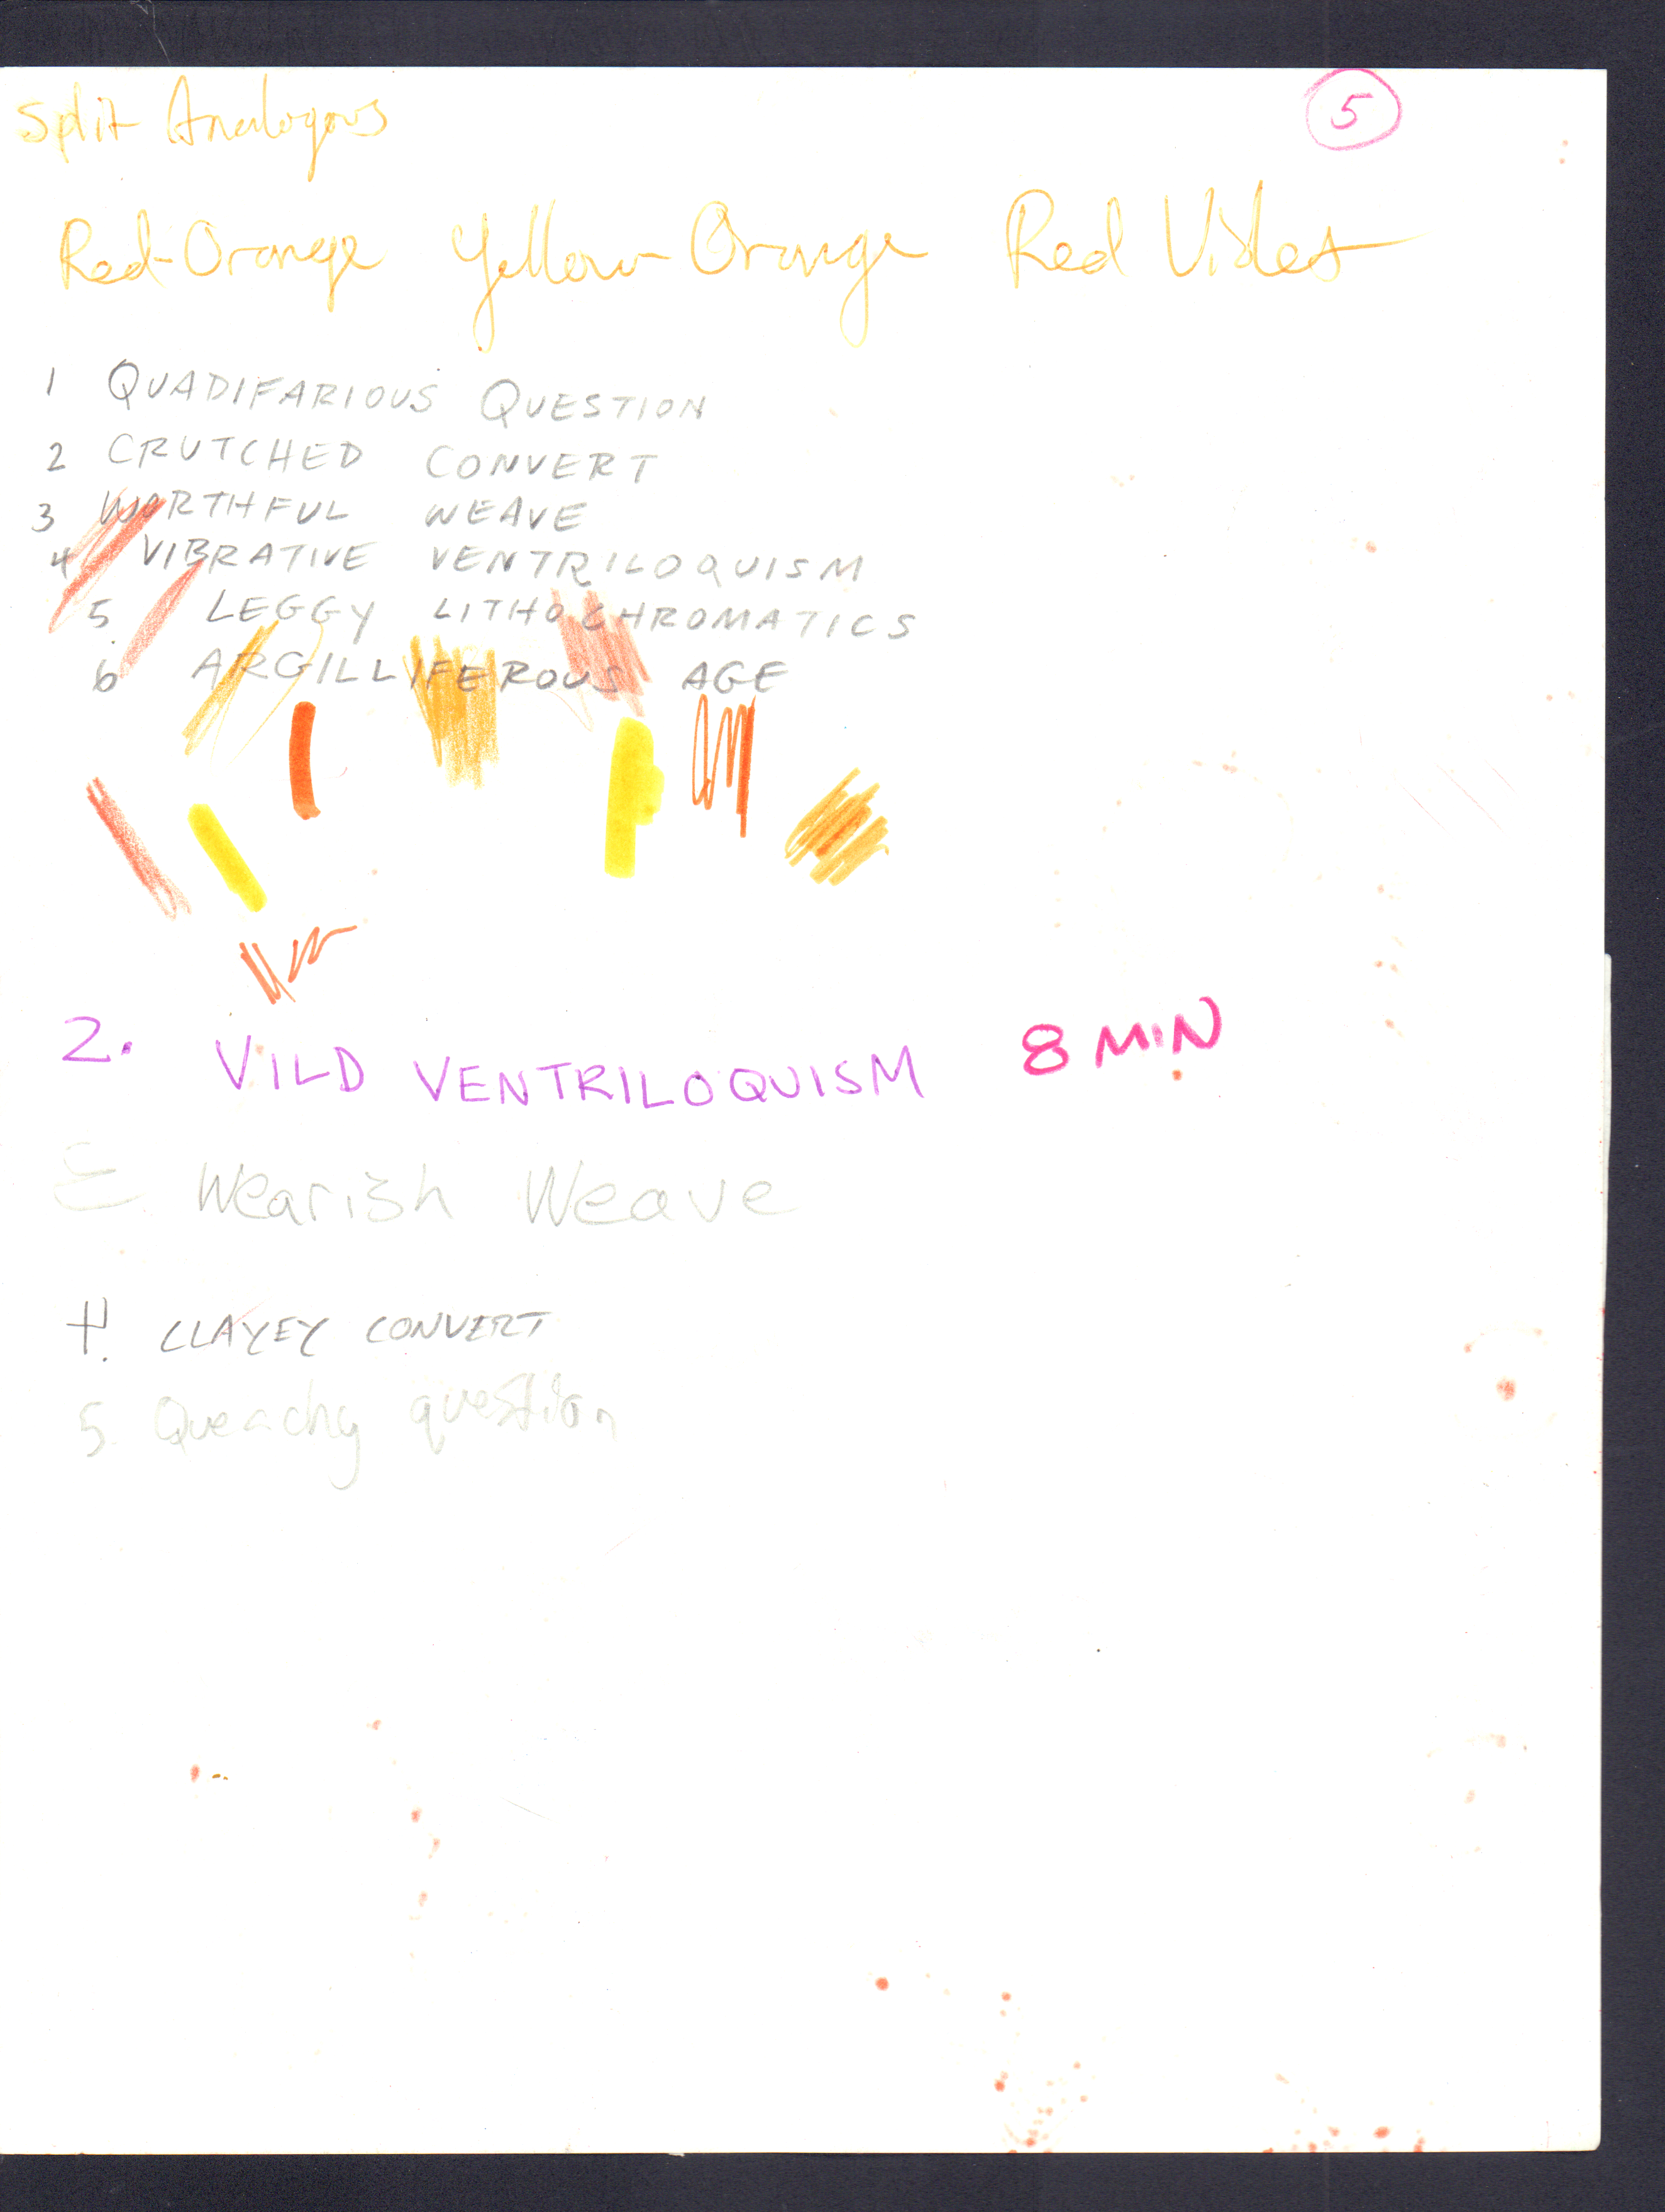 Split Analogous 5
Red-Orange Yellow-Orange Red Violet
1 QUADIFARIOUS QUESTION
2 CRUTCHED CONVERT
3 WORTHFUL WEAVE
4 VIBRATIVE VENTRILOQUISM
5. LEGGY LITHOCHROMATICS
6 ARGILLIFEROUS AGE
2. VILD VENTRILOQUISM 8 MIN
Wearish Weave
4. CLAYEY CONVERT
5. Queachy question